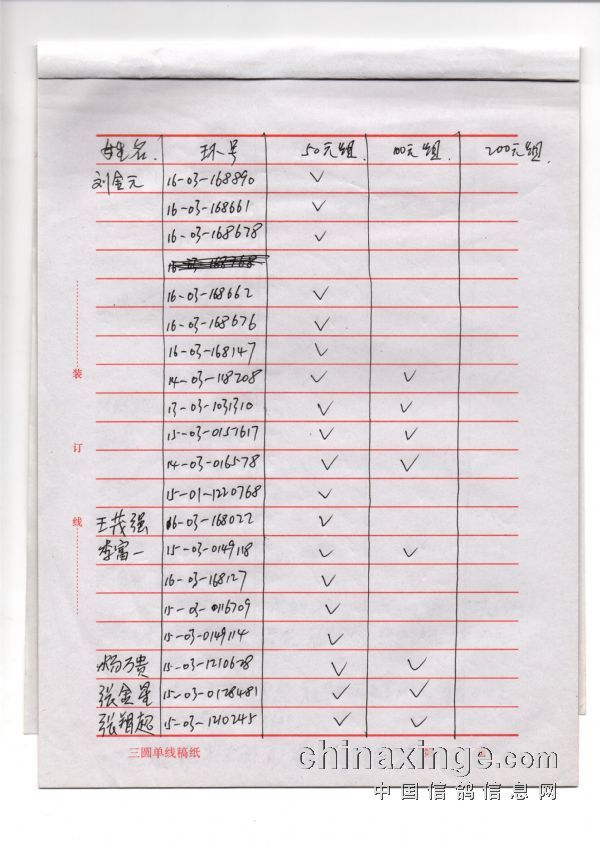 姓名. 环号 50元组. 100元组. 200元组.
刘金元 16-03-168890 ✓
16-03-168661 ✓
16-03-168678 ✓
16-03-168662 ✓
16-03-168676 ✓
16-03-168147 ✓
14-03-118208 ✓ ✓
13-03-1031310 ✓ ✓
15-03-0157617 ✓ ✓
14-03-016578 ✓ ✓
15-01-1220768 ✓
王茂强 16-03-168022 ✓
李富一 15-03-0149118 ✓ ✓
16-03-168127 ✓
15-03-0116709 ✓
15-03-0149114 ✓
杨万贵 15-03-1210678 ✓ ✓
张金星 15-03-0128481 ✓ ✓
张翔起 15-03-1210245 ✓ ✓
装
订
线
三圆单线稿纸
chinaxinge.com
中国信鸽信息网